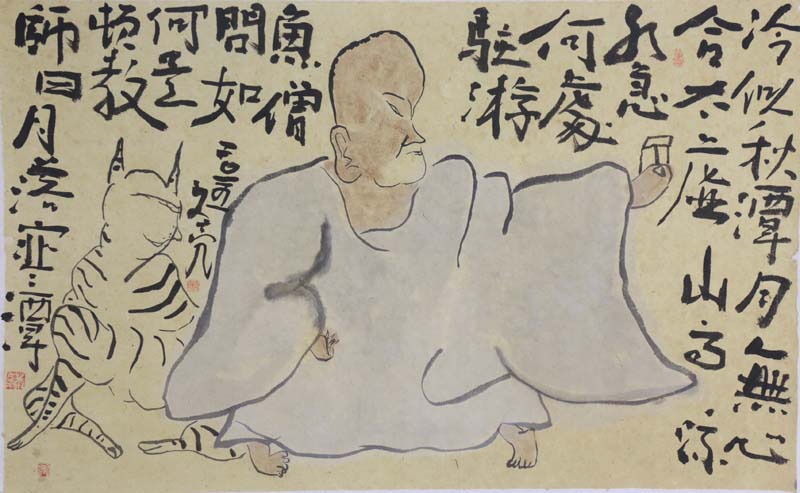 冷似秋潭月無心
合太虛山高流
水急
何處
駐游
魚僧
問如
何是
頓教
師曰月落寒潭